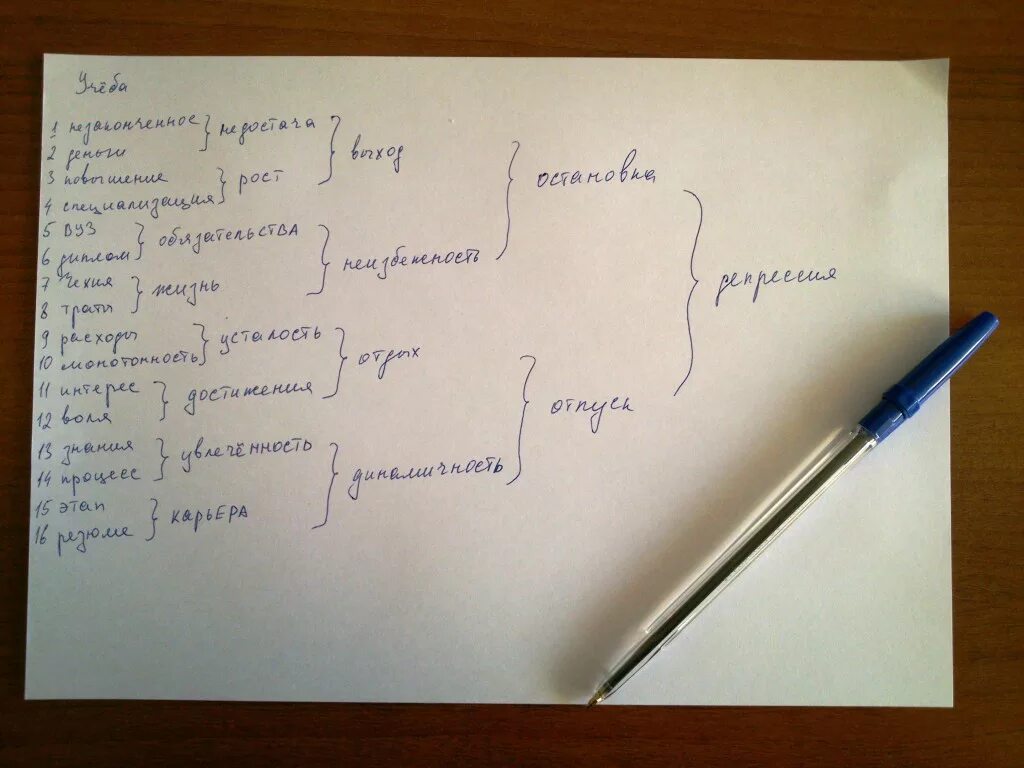 Учёба
1 незаконченное
2 деньги
недостача
3 повышение
4 специализация
рост
выход
5 ВУЗ
6 диплом
обязательства
7 Чехия
8 траты
жизнь
неизбежность
остановка
9 расходы
10 монотонность
усталость
11 интерес
12 воля
достижения
отдых
13 знания
14 процесс
увлечённость
15 этап
16 резюме
карьЕРА
динамичность
отпуск
депрессия